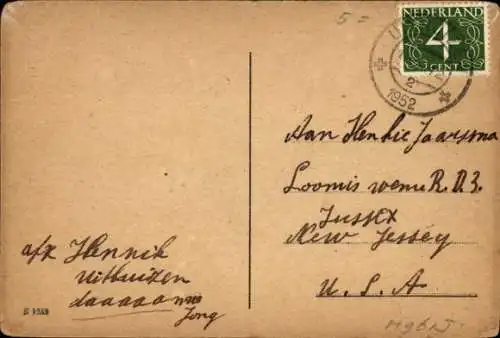 5=
NEDERLAND
4
CENT
U
2
1952
Aan Henkie Jaarsma
Loomis wenu R.D.3.
Sussex
New Jessey
U.S.A
afz Hennik
Uithuizen
daaaaa
Jong